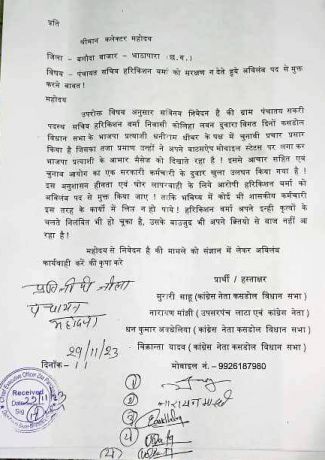 प्रति
श्रीमान कलेक्टर महोदय
जिला - बलौदा बाजार - भाठापारा (छ.ग.)
विषय - पंचायत सचिव हरिकिशन वर्मा को संरक्षण न देते हुये अविलंब पद से मुक्त
करने बाबत!
महोदय
उपरोक्त विषय अनुसार सविनय निवेदन है की ग्राम पंचायत सकरी
पदस्थ सचिव हरिकिशन वर्मा निवासी कोलिहा लवन दुवारा विगत दिनों कसडोल
विधान सभा के भाजपा प्रत्याशी धनीराम धीवर के पक्ष में चुनावी प्रचार प्रसार
किया है जिसका तजा प्रमाण उन्होंने ने अपने वाटसऐप मोबाइल स्टेटस पर लगा कर
भाजपा प्रत्याशी के आभार मैसेज को दिखाते रहा है ! इसमे आचार सहित एवं
चुनाव आयोग का एक सरकारी कर्मचारी के दुवार खुला उलघन किया गया है !
इस अनुशासन हीनता एवं घोर लापरवाही के लिये आरोपी हरिकिशन वर्मा को
अविलंब पद से मुक्त किया जाए ! ताकि भविष्य में कोई भी शासकीय कर्मचारी
इस तरह के कार्यो में लिप्त न हो पाये ! हरिकिशन वर्मा अपने इन्ही कृत्यों के
चलते निलंबित भी हो चुका है, उसके बाउजुद भी अपने क्रितियो से बाज नहीं आ
रहा है !
महोदय से निवेदन है की मामले को संज्ञान में लेकर अविलंब
कार्यवाही करें की कृपा करे
प्रार्थी / हस्ताक्षर
मुरारी साहू (कांग्रेस नेता कसडोल विधान सभा)
नारायण मांझी (उपसरपंच लाटा एवं कांग्रेस नेता)
धन कुमार अवधेलिया (कांग्रेस नेता कसडोल विधान सभा)
विक्रान्ता यादव (कांग्रेस नेता कसडोल विधान सभा)
पंचायत
महोदय
29/11/23
दिनांक-
मोबाइल नं. -9926187980
Received
Date
Sig
①
② नारायण मांझी
③
④